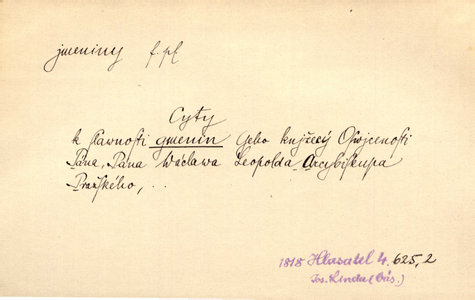 jmeniny f. pl.
Cyty
k slavnosti gmenin Geho knjžecý Oswjcenosti
Pána, Pána Wácslawa Leopolda Arcybiskupa
Pražského, . .
1818 Hlasatel 4. 625, 2
Jos. Linda (Bás.)